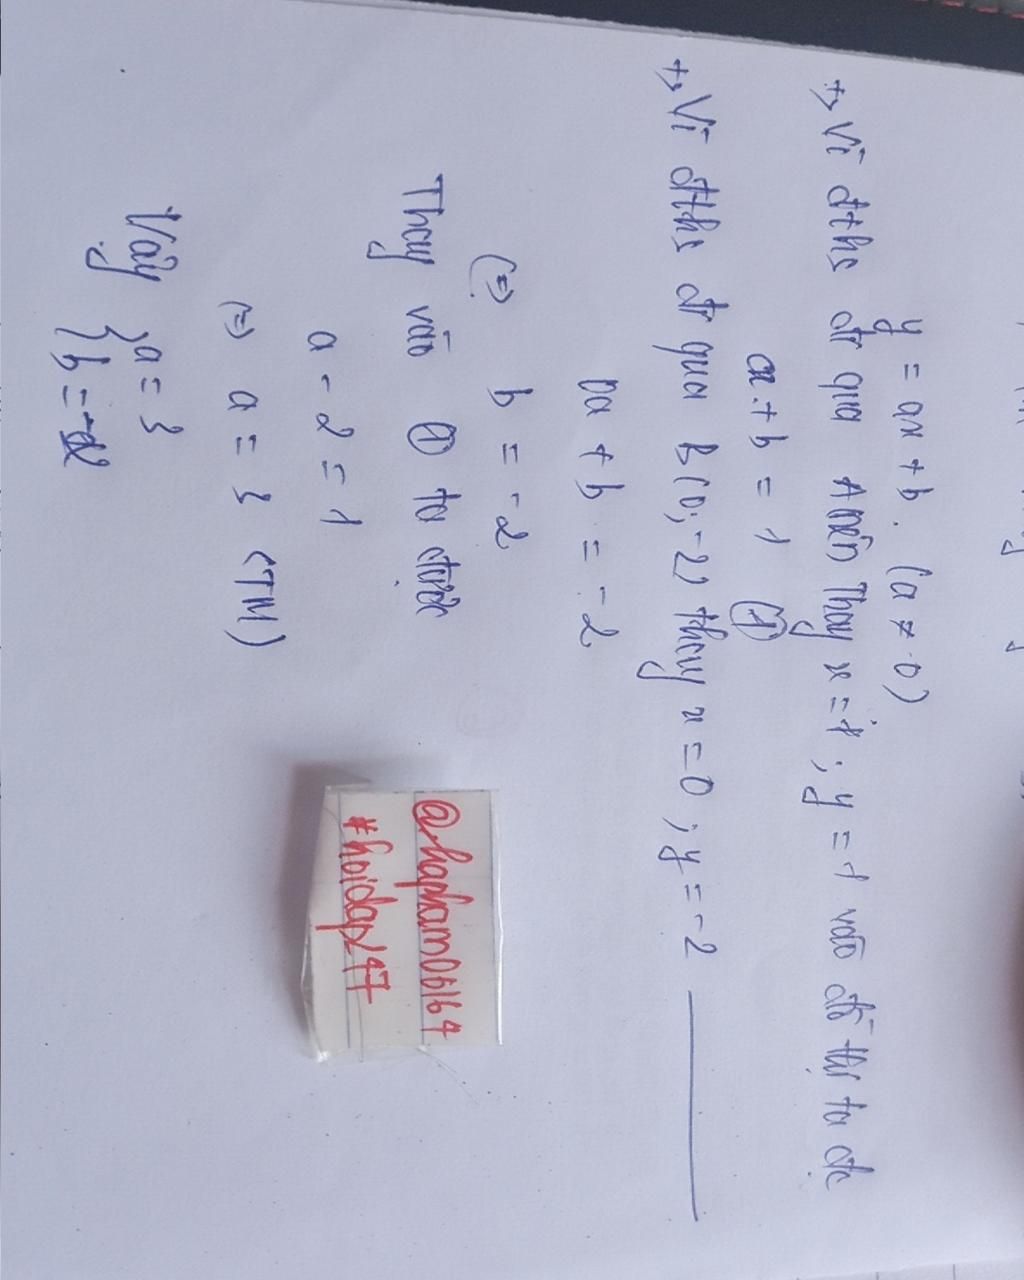 y = ax + b. (a ≠ 0)
+, Vì đths đi qua A nên Thay x = 1 ; y = 1 vào đồ thị ta đc
a + b = 1 (1)
+, Vì đths đi qua B(0; -2) thay x = 0 ; y = -2
0a + b = -2
(=) b = -2
Thay vào (1) ta được
a - 2 = 1
(=) a = 3 (TM)
Vậy { a = 3
{ b = -2
@hapham06164
#hoidap247